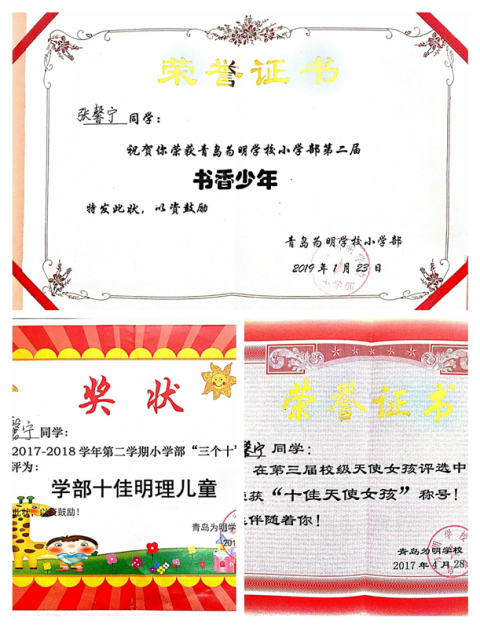 荣誉证书
张馨宁 同学：
祝贺你荣获青岛为明学校小学部第二届
书香少年
特发此状，以资鼓励
青岛为明学校小学部
2019年1月23日
奖状
馨宁 同学：
2017-2018学年第二学期小学部“三个十”
评为：
学部十佳明理儿童
此状，以资鼓励！
青岛为明学
201
荣誉证书
馨宁 同学：
在第三届校级天使女孩评选中
荣获“十佳天使女孩”称号！
伴随着你！
青岛为明学校
2017年4月28